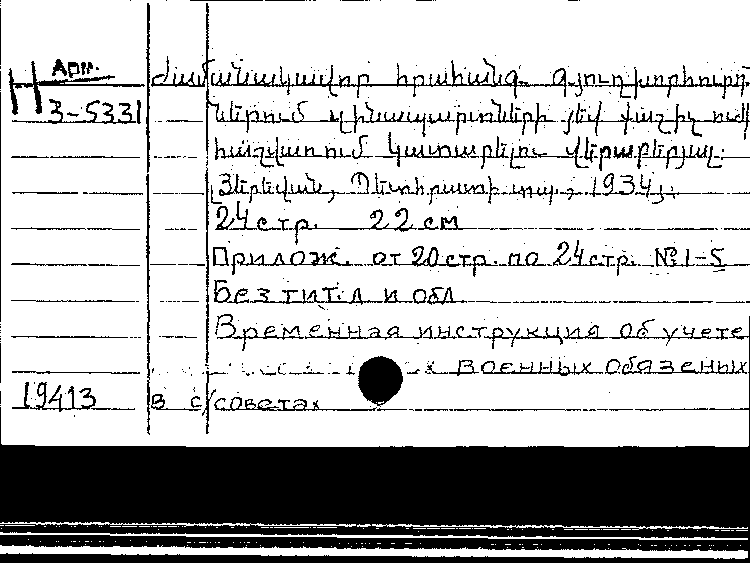 Арм.
Ժամանակավոր հրահանգ գյուղխորհուրդ
3-5331
ներում զինապարտների յեվ հաշվառում կատարելու վերաբերյալ.
Յերեվան, Պետհրատի տպ., 1934թ.
24 стр. 22 см
Прилож. от 20 стр. по 24 стр. № 1-5
Без тит. л и обл.
Временная инструкция об учете
военных обязеных
19413
в с/советах